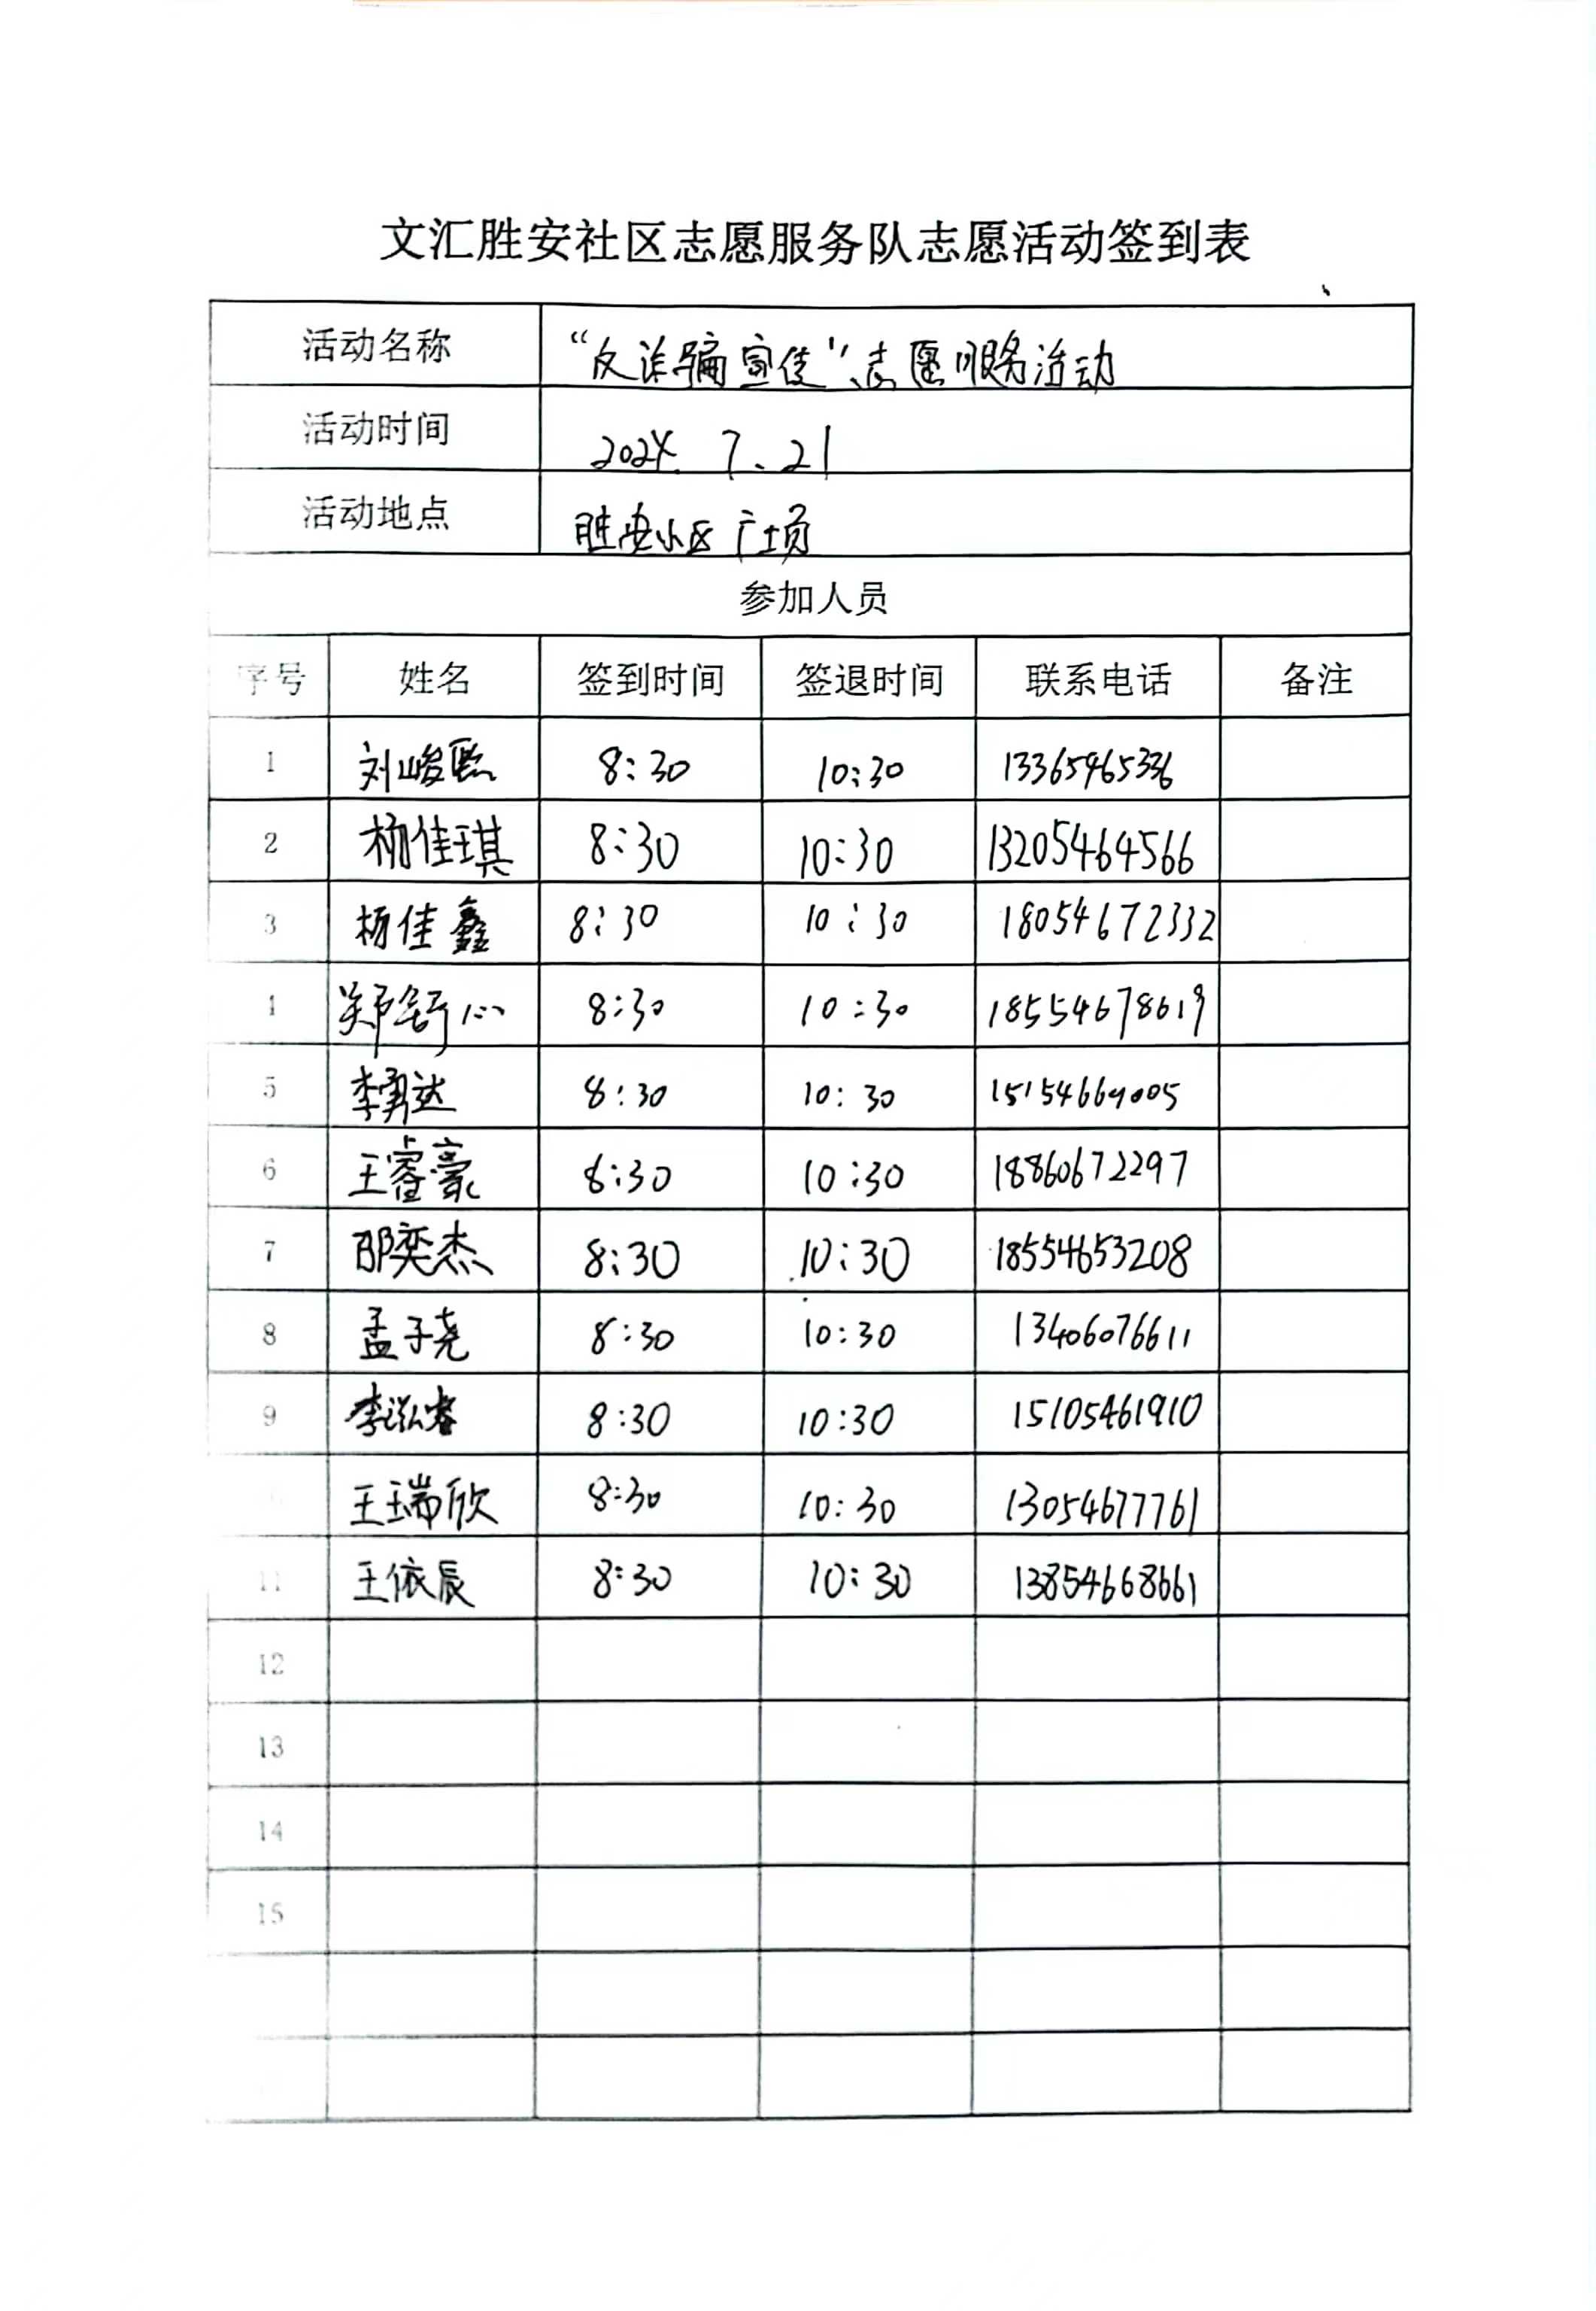 文汇胜安社区志愿服务队志愿活动签到表
活动名称 “反诈骗宣传”志愿服务活动
活动时间 2024. 7.21
活动地点 胜安小区广场
参加人员
序号 姓名 签到时间 签退时间 联系电话 备注
1 刘峻熙 8:30 10:30 13365465336
2 杨佳琪 8:30 10:30 13205464566
3 杨佳鑫 8:30 10:30 18054672332
4 郑舒心 8:30 10:30 18554678619
5 李勇达 8:30 10:30 15154669005
6 王睿豪 8:30 10:30 18860672297
7 邵奕杰 8:30 10:30 18554653208
8 孟子尧 8:30 10:30 13406076611
9 李泓睿 8:30 10:30 15105461910
王瑞欣 8:30 10:30 13054677761
11 王依辰 8:30 10:30 13854668661
12
13
14
15